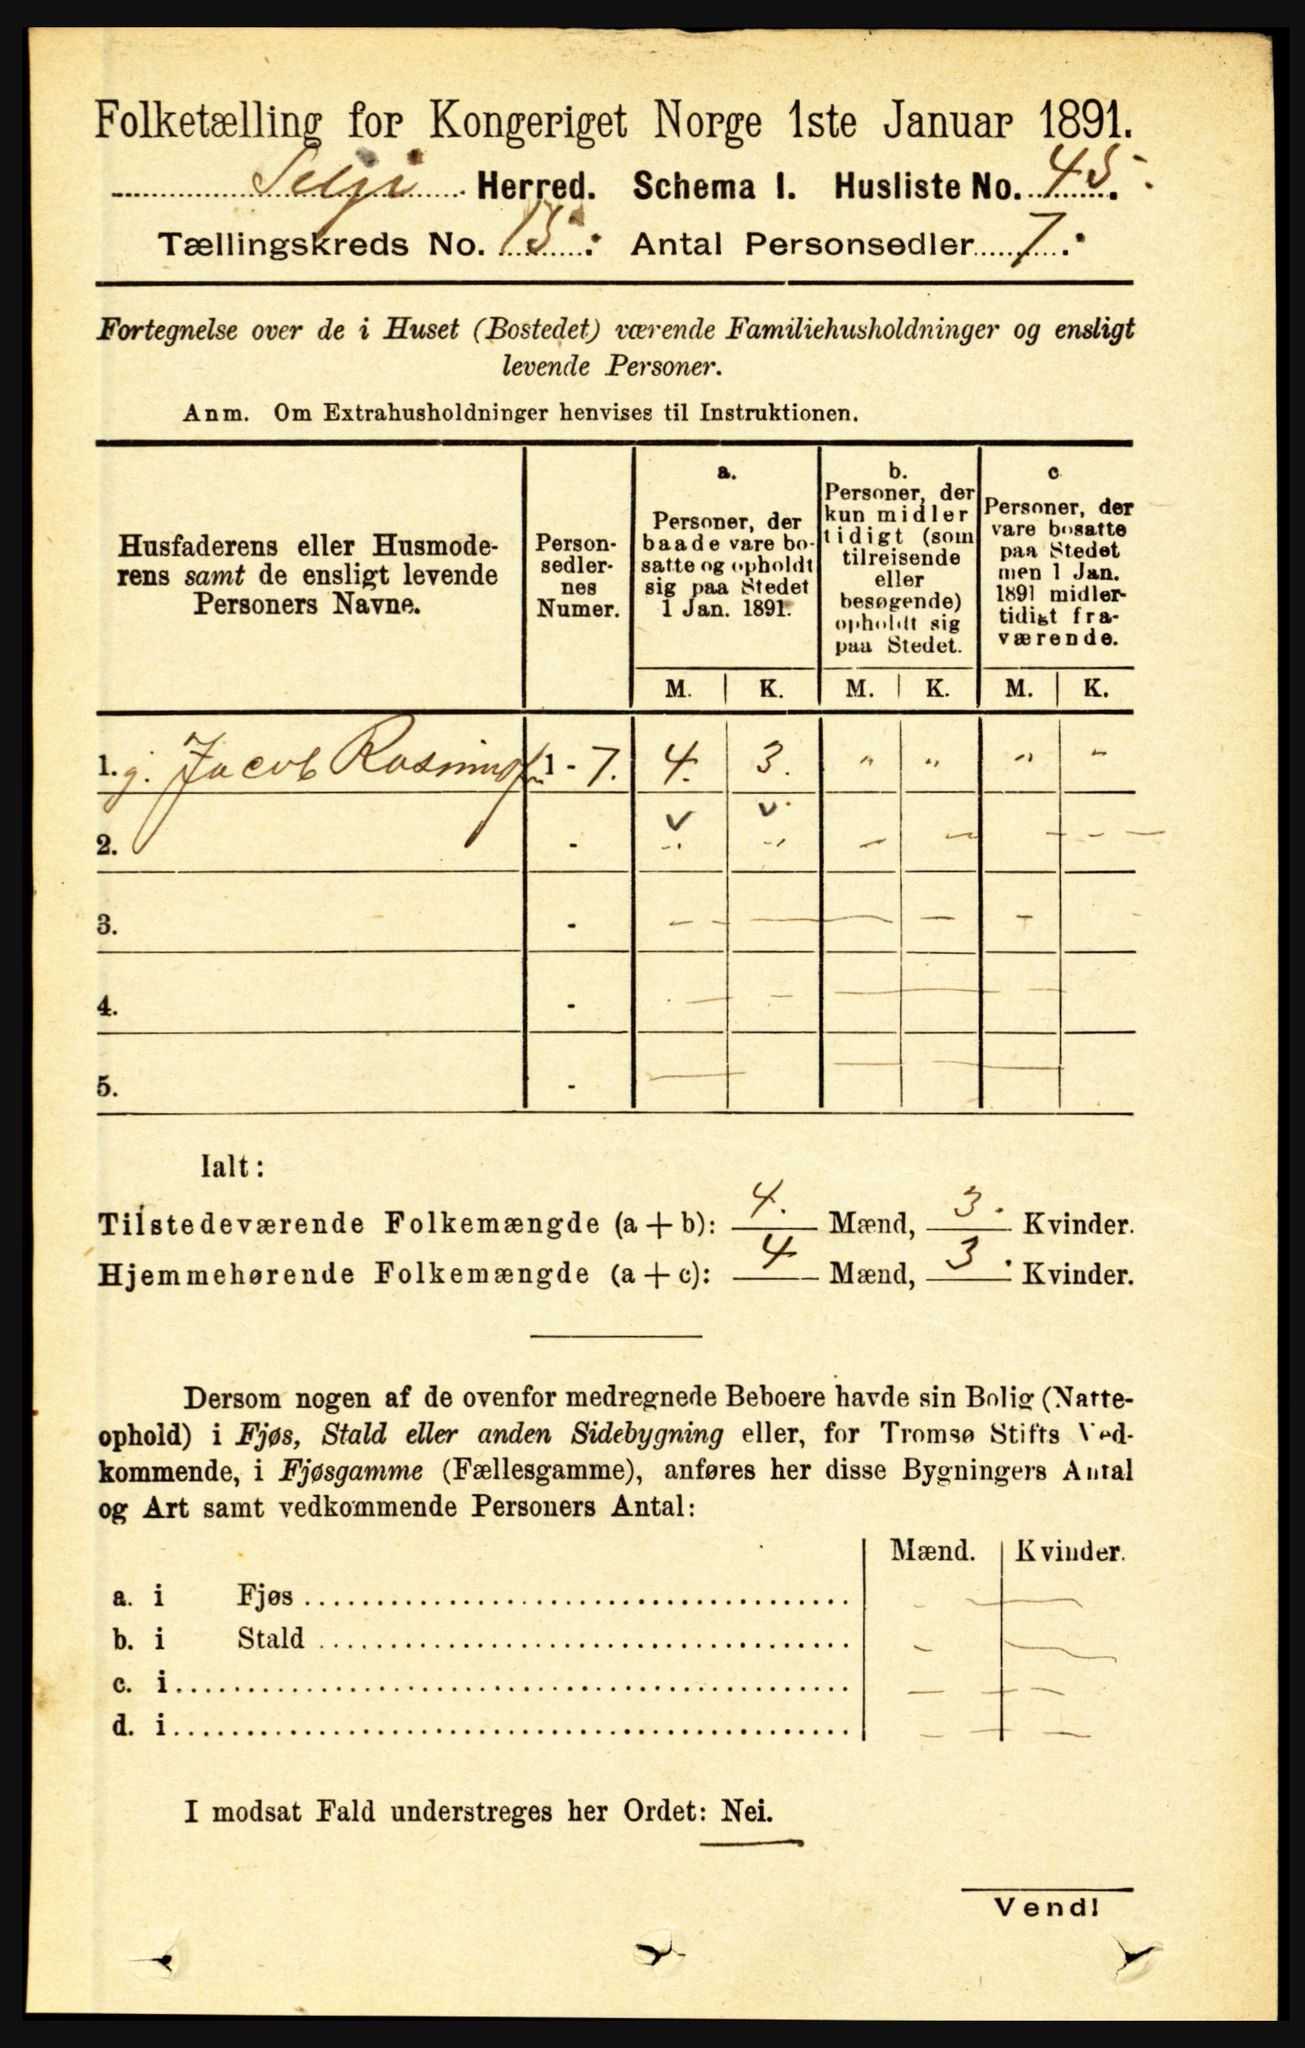 Folketælling for Kongeriget Norge 1ste Januar 1891.
Selje Herred. Schema I. Husliste No. 45.
Tællingskreds No. 13. Antal Personsedler 7.
Fortegnelse over de i Huset (Bostedet) værende Familiehusholdninger og ensligt
levende Personer.
Anm. Om Extrahusholdninger henvises til Instruktionen.
Husfaderens eller Husmode-
rens samt de ensligt levende
Personers Navne.
Person-
sedler-
nes
Numer.
a.
Personer, der
baade vare bo-
satte og opholdt
sig paa Stedet
1 Jan. 1891.
b.
Personer, der
kun midler
tidigt (som
tilreisende
eller
besøgende)
opholdt sig
paa Stedet.
c
Personer, der
vare bosatte
paa Stedet
men 1 Jan.
1891 midler-
tidigt fra-
værende.
M. K. M. K. M. K.
1. g. Jacob Rasmus 1 - 7. 4. 3. " " " "
2. -
3. -
4. -
5. -
Ialt:
Tilstedeværende Folkemængde (a + b): 4. Mænd, 3. Kvinder.
Hjemmehørende Folkemængde (a + c): 4 Mænd, 3. Kvinder.
Dersom nogen af de ovenfor medregnede Beboere havde sin Bolig (Natte-
ophold) i Fjøs, Stald eller anden Sidebygning eller, for Tromsø Stifts Ved-
kommende, i Fjøsgamme (Fællesgamme), anføres her disse Bygningers Antal
og Art samt vedkommende Personers Antal:
Mænd. Kvinder.
a. i Fjøs
b. i Stald
c. i
d. i
I modsat Fald understreges her Ordet: Nei.
Vend!